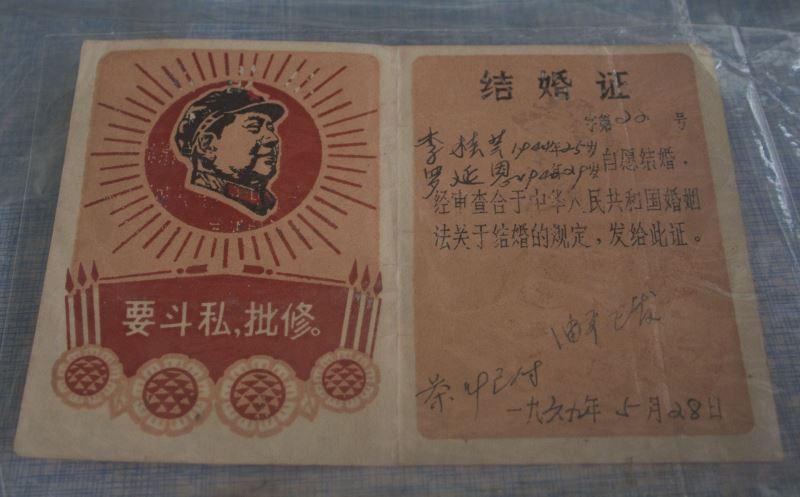 要斗私，批修。
结婚证
字第22号
李桂兰1944年25岁
罗延恩1940年29岁自愿结婚，
经审查合于中华人民共和国婚姻
法关于结婚的规定，发给此证。
已付
一九六九年5月28日